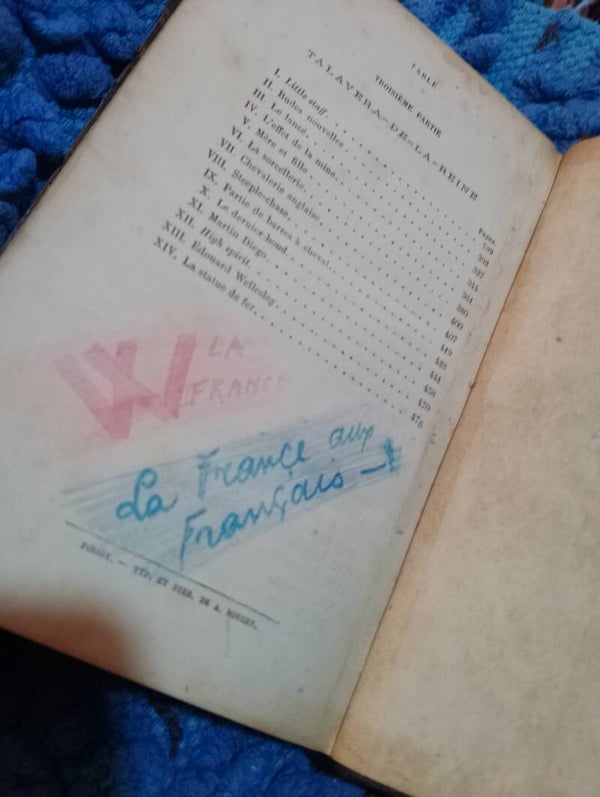 TABLE
TROISIÈME PARTIE
TALAVERA-DE-LA-REINE
Pages.
I. Little staff.
II. Rudes nouvelles
III. Le lancé.
IV. L'effet de la mine.
V. Mère et fille
VI. La sorcellerie.
VII. Chevalerie anglaise.
VIII. Steeple-chase.
IX. Partie de barres à cheval.
X. Le dernier bond.
XI. Martin Diego. 441
XII. High spirit. 458
XIII. Édouard Wellesley. 470
XIV. La statue de fer. 476
W LA
FRANCE
La France aux
Français
POISSY. — TYP. ET STER. DE A. BOURET.